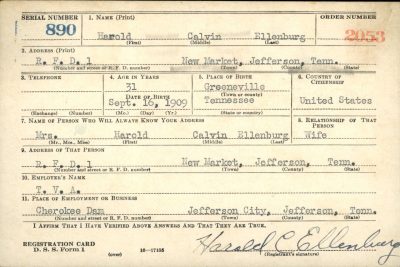 SERIAL NUMBER 1. NAME (Print) ORDER NUMBER
890 Harold Calvin Ellenburg 2053
(First) (Middle) (Last)
2. ADDRESS (Print)
R.F.D. 1 New Market, Jefferson, Tenn.
(Number and street or R. F. D. number) (Town) (County) (State)
3. TELEPHONE 4. AGE IN YEARS 5. PLACE OF BIRTH 6. COUNTRY OF CITIZENSHIP
31 Greeneville
DATE OF BIRTH (Town or county)
Sept. 16, 1909 Tennessee United States
(Exchange) (Number) (Mo.) (Day) (Yr.) (State or country)
7. NAME OF PERSON WHO WILL ALWAYS KNOW YOUR ADDRESS 8. RELATIONSHIP OF THAT PERSON
Mrs. Harold Calvin Ellenburg Wife
(Mr., Mrs., Miss) (First) (Middle) (Last)
9. ADDRESS OF THAT PERSON
R.F.D. 1 New Market, Jefferson, Tenn.
(Number and street or R. F. D. number) (Town) (County) (State)
10. EMPLOYER'S NAME
T.V.A.
11. PLACE OF EMPLOYMENT OR BUSINESS
Cherokee Dam Jefferson City, Jefferson, Tenn.
(Number and street or R. F. D. number) (Town) (County) (State)
I AFFIRM THAT I HAVE VERIFIED ABOVE ANSWERS AND THAT THEY ARE TRUE.
REGISTRATION CARD
D. S. S. Form 1 (over) 16—17105 Harold C Ellenburg
(Registrant's signature)